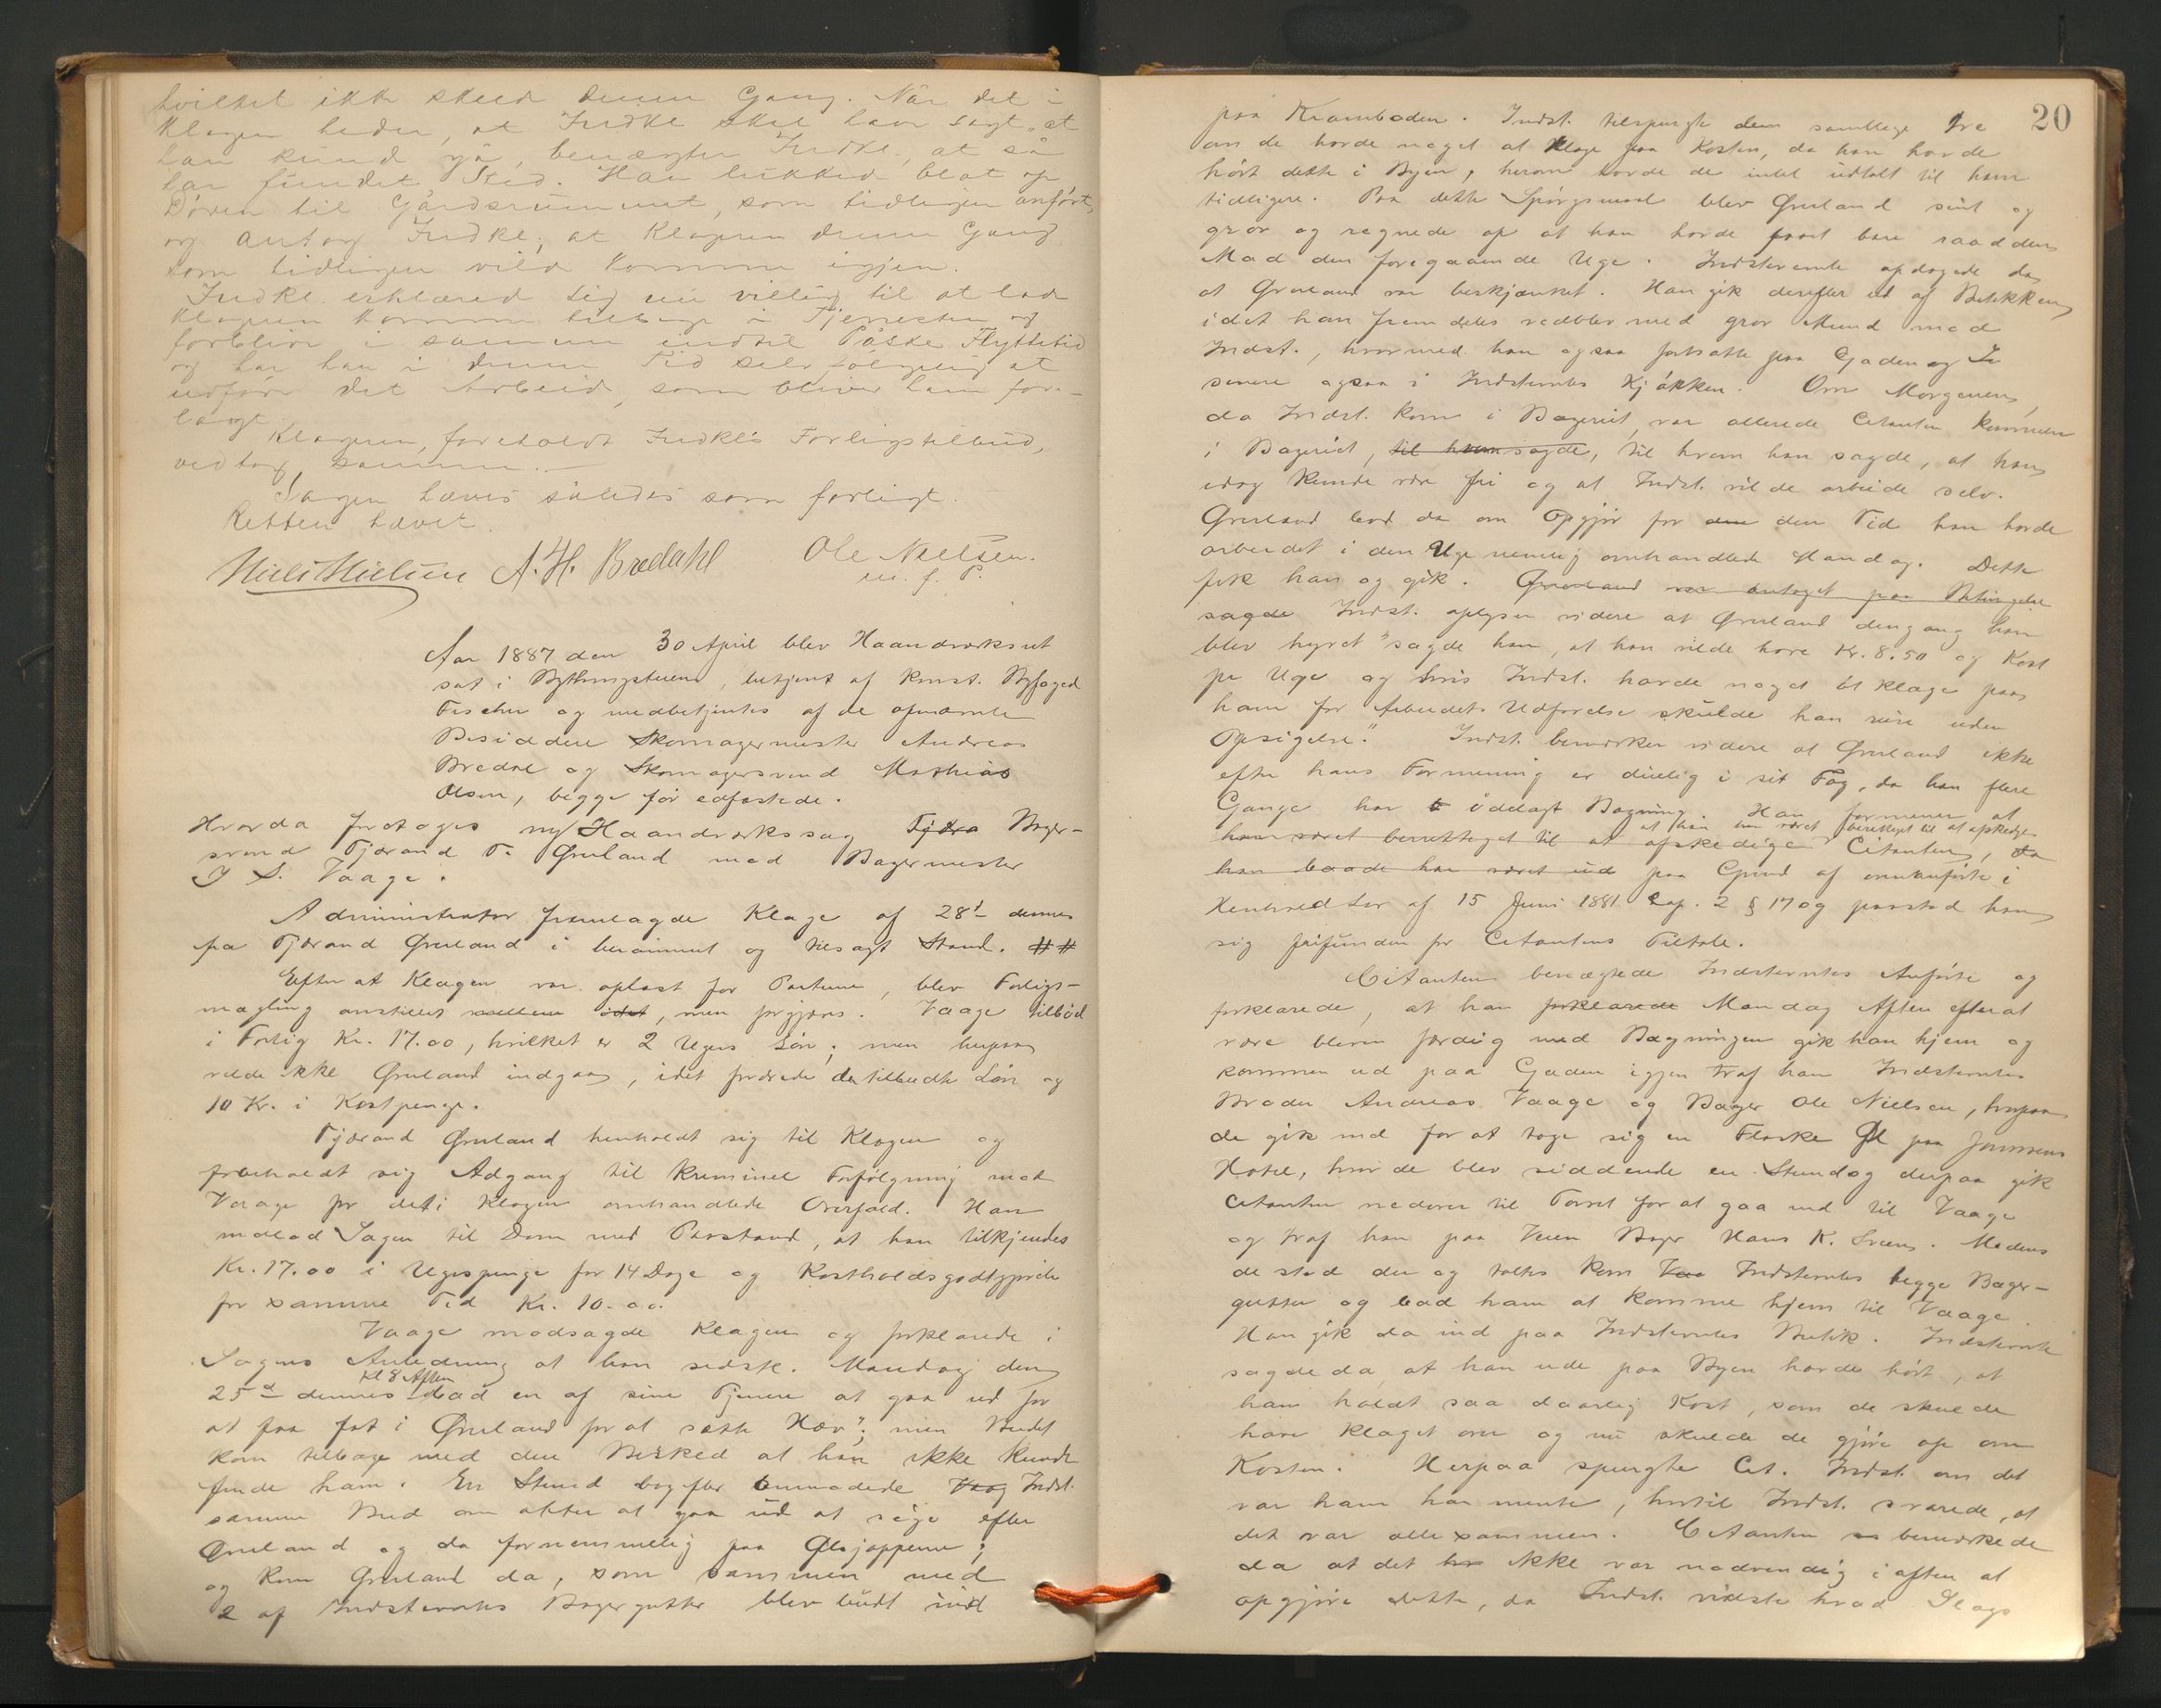 hvilket ikke skeed denne Gang. Når det i
Klagen heder, at Indkl skal have sagt, at
han kunde gå, benægter Indkl., at så
har fundet Sted. Han lukked blot op
Døren til Gårdsrummet, som tidligere anført,
og antog Indkl., at Klageren denne Gang
som tidligere vilde komme igjen.
Indkl. erklæred sig nu villig til at lade
Klageren komme tilbage i Tjenesten og
forblive i samme indtil Påske Flyttetid
og har han i denne Tid selvfølgelig at
udføre det Arbeid, som bliver ham fore-
lagt.
Klageren, foreholdt Indkl's Forligstilbud,
vedtog samme.
Sagen hæves således som forligt.
Retten hævet.
Niels Nielsen A. H. Bredahl Ole Nielsen.
m. f. P.
Aar 1887 den 30 April blev Haandværksret
sat i Bythingstuen, betjent af konst. Byfoged
Fischer og medbetjentes af de opnævnte
Besiddere Skomagermester Andreas
Bredal og Skomagersvend Mathias
Olsen, begge før edfæstede.
Hvorda foretoges ny Haandværkssag Bager-
svend Tjærand T. Øreland mod Bagermester
J S. Vaage.
Administrator fremlagde Klage af 28d dennes
fra Tjærand Øreland i berammet og tilsagt Stand. ##
Efter at Klagen var oplæst for Parterne, blev Forligs-
mægling anstillet mellem, men forgjæves. Vaage tilbød
i Forlig Kr. 17.00, hvilket er 2 Ugers Løn; men herpaa
vilde ikke Øreland indgaa, idet fordrede den tilbudte Løn og
10 Kr. i Kostpenge.
Tjærand Øreland henholdt sig til Klagen og
forbeholdt sig Adgang til kriminel Forfølgning mod
Vaage for det i Klagen omhandlede Overfald. Han
indlod Sagen til Dom med Paastand, at han tilkjendes
Kr. 17.00 i Ugespenge for 14 Dage og Kostholdsgodtgjørelse
for samme Tid Kr. 10.00.
Vaage modsagde Klagen og forklarede i
Sagens Anledning at han sidstl. Mandag den
kl 8 Aften
25d dennes bad en af sine Tjenere at gaa ud for
at faa fat i Øreland for at sætte Hæv"; men Budet
kom tilbage med den Besked at han ikke kunde
finde ham. En Stund bagefter anmodede Vaag Indst.
samme Bud om atter at gaa ud at søge efter
Øreland og da fornemmelig paa Ølsjapperne;
og kom Øreland da, som sammen med
2 af Indstevntes Bagergutter blev budt ind
20
paa Kramboden. Indst. tilspurgte dem samtlige tre
om de havde noget at klage paa Kosten, da han havde
hørt dette i Byen, herom havde de intet udtalt til ham
tidligere. Paa dette Spørgsmaal blev Øreland sint og
grov og regnede op at han havde faaet bare raadden
Mad den foregaaende Uge. Indstevnte opdagede da
at Øreland var beskjænket. Han gik derefter ud af Butikken
idet han fremdeles vedblev med grov Mund mod
Indst., hvormed han ogsaa fortsatte paa Gaden og
senere ogsaa i Indstevntes Kjøkken. Om Morgenen,
da Indst. kom i Bageriet, var allerede Citanten kommen
i Bageriet, til hvem sagde, til hvem han sagde, at han
idag kunde være fri og at Indst. vilde arbeide selv.
Øreland bad da om Opgjør for den Tid han havde
arbeidet i den Uge nemlig omhandlede Mandag. Dette
fik han og gik. Øreland var antaget paa Betingelse
sagde Indst. oplyser videre at Øreland dengang han
blev hyret "sagde han, at han vilde have Kr. 8.50 og Kost
pr Uge og hvis Indst. havde noget at klage paa
ham for Arbeidets Udførelse skulde han reise uden
Opsigelse." Indst. bemærker videre at Øreland ikke
efter hans Formening er duelig i sit Fag, da han flere
Gange har ødelagt Bagning. Han formener at
at han har været berettiget til at afskedige
han været berettiget til at afskedige Citanten, da
han baade har været ude paa Grund af ovenanførte i
Henhold Lov af 15 Juni 1881 Cap. 2 § 17 og paastod han
sig frifunden for Citantens Tiltale.
Citanten benægtede Indstevntes Anførte og
forklarede, at han forklarede Mandag Aften efterat
være bleven færdig med Bagningen gik han hjem og
kommen ud paa Gaden igjen traf han Indstevntes
Broder Andreas Vaage og Bager Ole Nielsen, hvorpaa
de gik ind for at tage sig en Flaske Øl paa Jonssens
Hotel, hvor de blev siddende en Stund og derpaa gik
Citanten nedover til Torvet for at gaa ind til Vaage
og traf han paa Veien Bager Hans K. Svens. Medens
de stod der og taltes kom Indstevntes begge Bager-
gutter og bad ham at komme hjem til Vaage.
Han gik da ind paa Indstevntes Butik. Indstevnte
sagde da, at han ude paa Byen havde hørt, at
han holdt saa daarlig Kost, som de skulde
have klaget over og nu skulde de gjøre op om
Kosten. Herpaa spurgte Cit. Indst. om det
var ham han mente, hvortil Indst. svarede, at
det var alle sammen. Citanten bemærkede
da at det ikke var nødvendig i aften at
opgjøre dette, da Indst. vidste hvad Slags